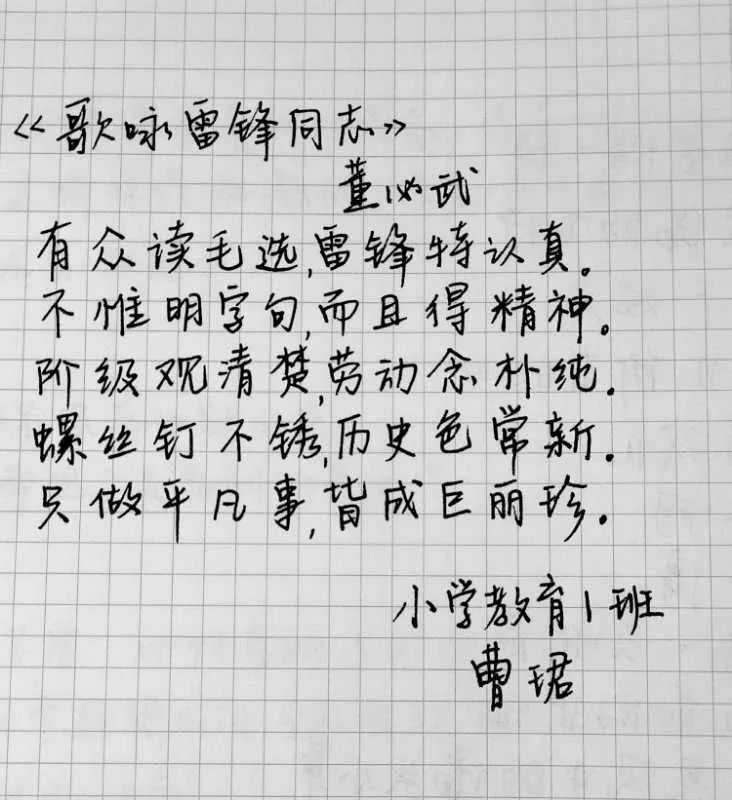 《歌咏雷锋同志》
董必武
有众读毛选,雷锋特认真。
不惟明字句,而且得精神。
阶级观清楚,劳动念朴纯.
螺丝钉不锈,历史色常新.
只做平凡事,皆成巨丽珍.
小学教育1班
曹珺